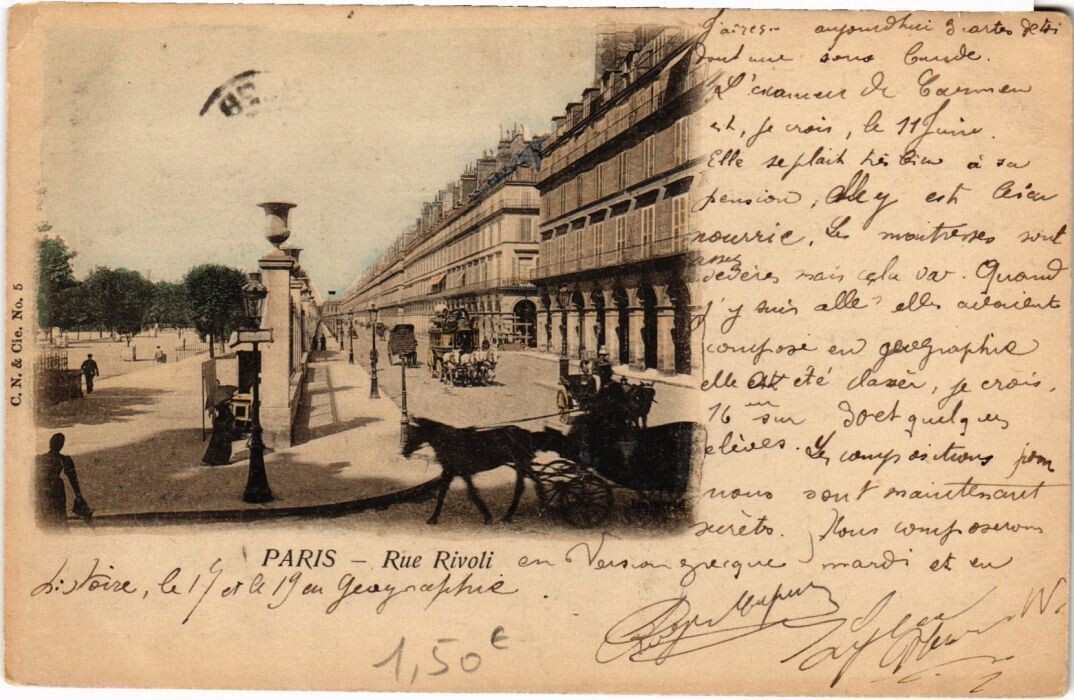 aujourdhui 3 cartes de toi
dont une sous bande.
L'examen de Carmen
est, je crois, le 11 Juin.
Elle se plait très bien à sa
pension, elle y est bien
nourrie. Les maitresses sont
assez
sévères mais cela va. Quand
j'y suis allé elles avaient
composé en géographie
elle a été classée, je crois,
16 sur 30 et quelques
élèves. Les compositions pour
nous sont maintenant
secrèts. Nous composerons
en Version grecque mardi et en
histoire, le 17 et le 19 en Géographie.
PARIS – Rue Rivoli
C. N. & Cie. No. 5
1,50 €